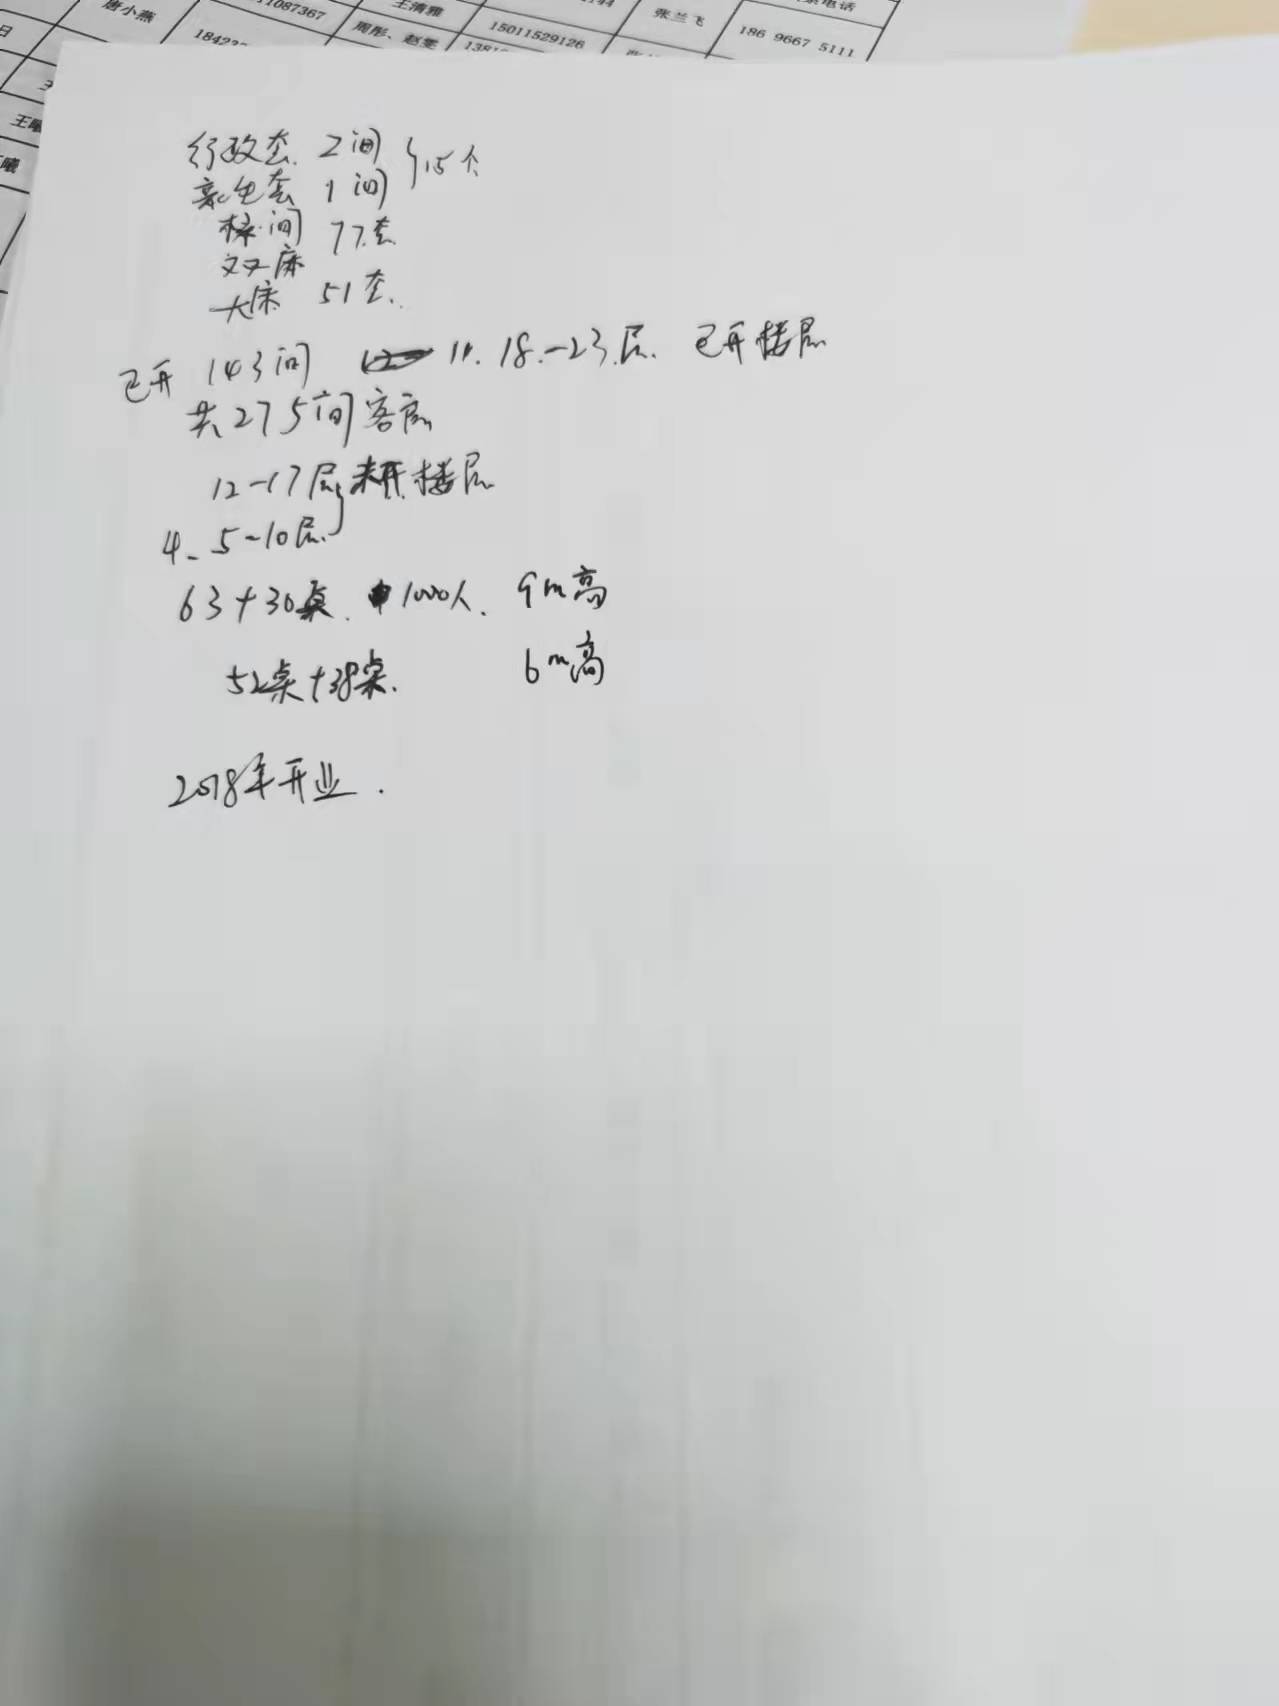 电话
唐小燕 11087367 王清雅 144 张兰飞 186 9667 5111
日 18423 周彤、赵雯 15011529126
1381
王曦
曦
行政套 2间 } 15个
亲子套 1间
标间 77套
双床
大床 51套.
已开 143间 11. 18.-23层. 已开楼层
共275间客房
12-17层 未开楼层
4、5-10层
63+30桌. 1000人. 9m高
52桌+38桌. 6m高
2018年开业.